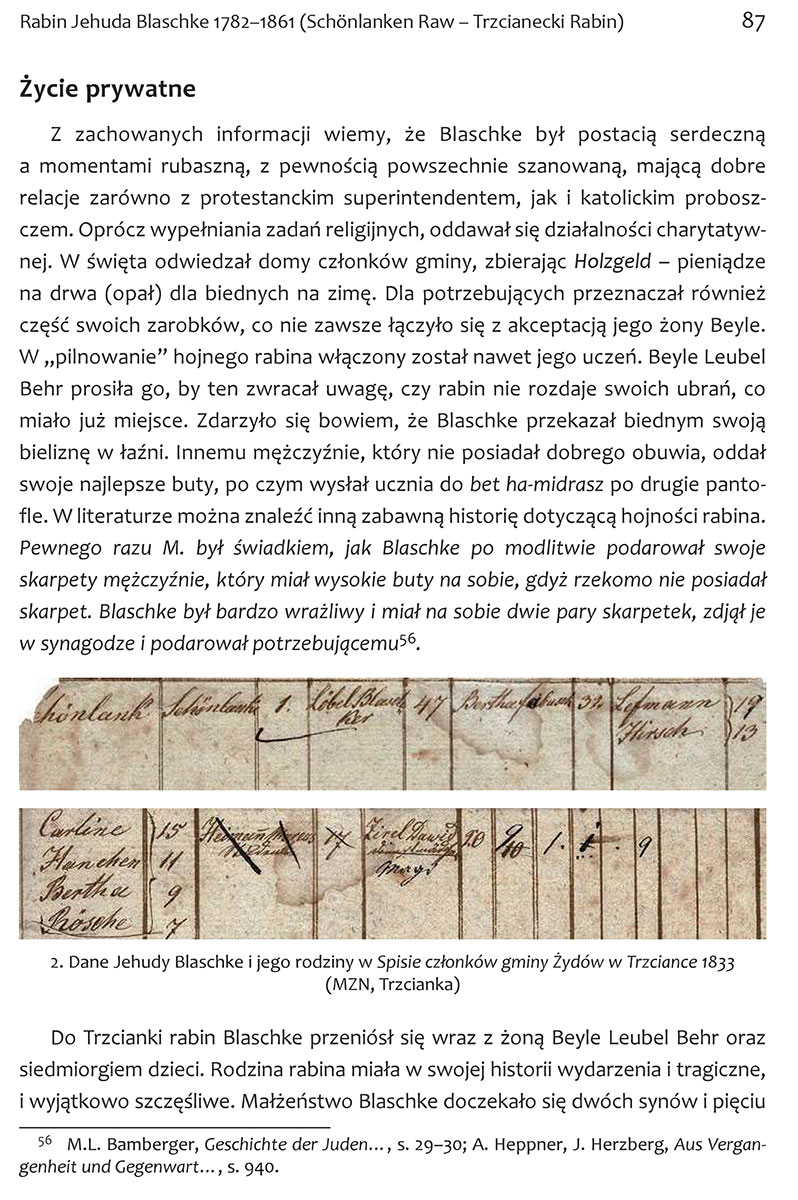 Rabin Jehuda Blaschke 1782–1861 (Schönlanken Raw – Trzcianecki Rabin) 87
Życie prywatne
Z zachowanych informacji wiemy, że Blaschke był postacią serdeczną
a momentami rubaszną, z pewnością powszechnie szanowaną, mającą dobre
relacje zarówno z protestanckim superintendentem, jak i katolickim probosz-
czem. Oprócz wypełniania zadań religijnych, oddawał się działalności charytatyw-
nej. W święta odwiedzał domy członków gminy, zbierając Holzgeld – pieniądze
na drwa (opał) dla biednych na zimę. Dla potrzebujących przeznaczał również
część swoich zarobków, co nie zawsze łączyło się z akceptacją jego żony Beyle.
W „pilnowanie” hojnego rabina włączony został nawet jego uczeń. Beyle Leubel
Behr prosiła go, by ten zwracał uwagę, czy rabin nie rozdaje swoich ubrań, co
miało już miejsce. Zdarzyło się bowiem, że Blaschke przekazał biednym swoją
bieliznę w łaźni. Innemu mężczyźnie, który nie posiadał dobrego obuwia, oddał
swoje najlepsze buty, po czym wysłał ucznia do bet ha-midrasz po drugie panto-
fle. W literaturze można znaleźć inną zabawną historię dotyczącą hojności rabina.
Pewnego razu M. był świadkiem, jak Blaschke po modlitwie podarował swoje
skarpety mężczyźnie, który miał wysokie buty na sobie, gdyż rzekomo nie posiadał
skarpet. Blaschke był bardzo wrażliwy i miał na sobie dwie pary skarpetek, zdjął je
w synagodze i podarował potrzebującemu⁵⁶.
Schönlank 1. Löbel Blasch 47 Bertha 32 Lefmann 19
ker Hirsch 13
Carline 15 17 Zirel Dawid 20 9/10 1. 1 9
Hanchen 11
Bertha 9
Rösche 7
2. Dane Jehudy Blaschke i jego rodziny w Spisie członków gminy Żydów w Trzciance 1833
(MZN, Trzcianka)
Do Trzcianki rabin Blaschke przeniósł się wraz z żoną Beyle Leubel Behr oraz
siedmiorgiem dzieci. Rodzina rabina miała w swojej historii wydarzenia i tragiczne,
i wyjątkowo szczęśliwe. Małżeństwo Blaschke doczekało się dwóch synów i pięciu
⁵⁶ M.L. Bamberger, Geschichte der Juden…, s. 29–30; A. Heppner, J. Herzberg, Aus Vergan-
genheit und Gegenwart…, s. 940.